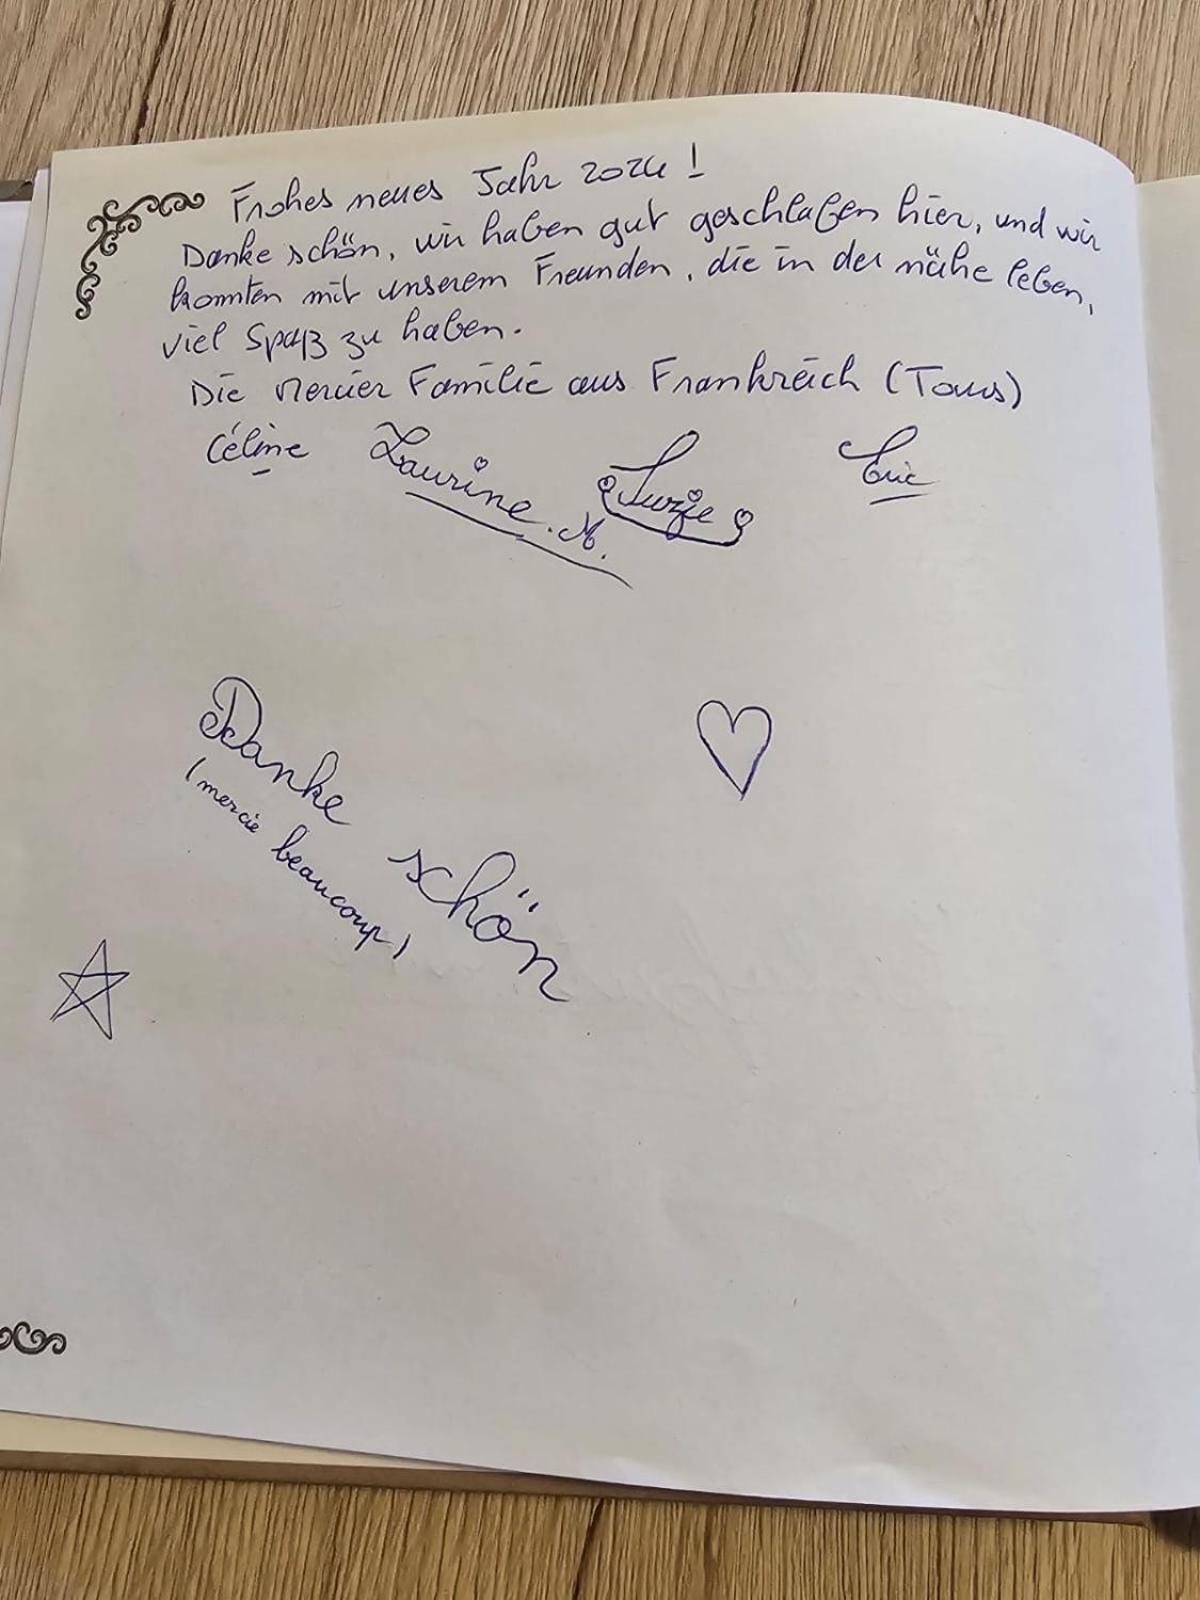 Frohes neues Jahr 2024!
Danke schön, wir haben gut geschlafen hier, und wir
konnten mit unserem Freunden, die in der nähe leben,
viel Spaß zu haben.
Die Mercier Familie aus Frankreich (Tours)
Céline Laurine. M. Suzie Eric
Danke schön
(mercie beaucoup)